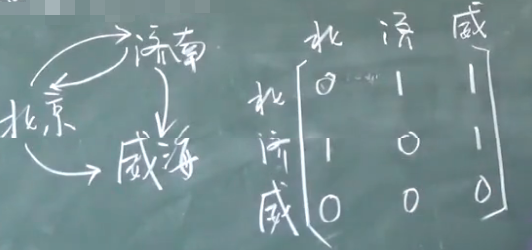 济南
北京
威海
北 济 威
北 0 1 1
济 1 0 1
威 0 0 0